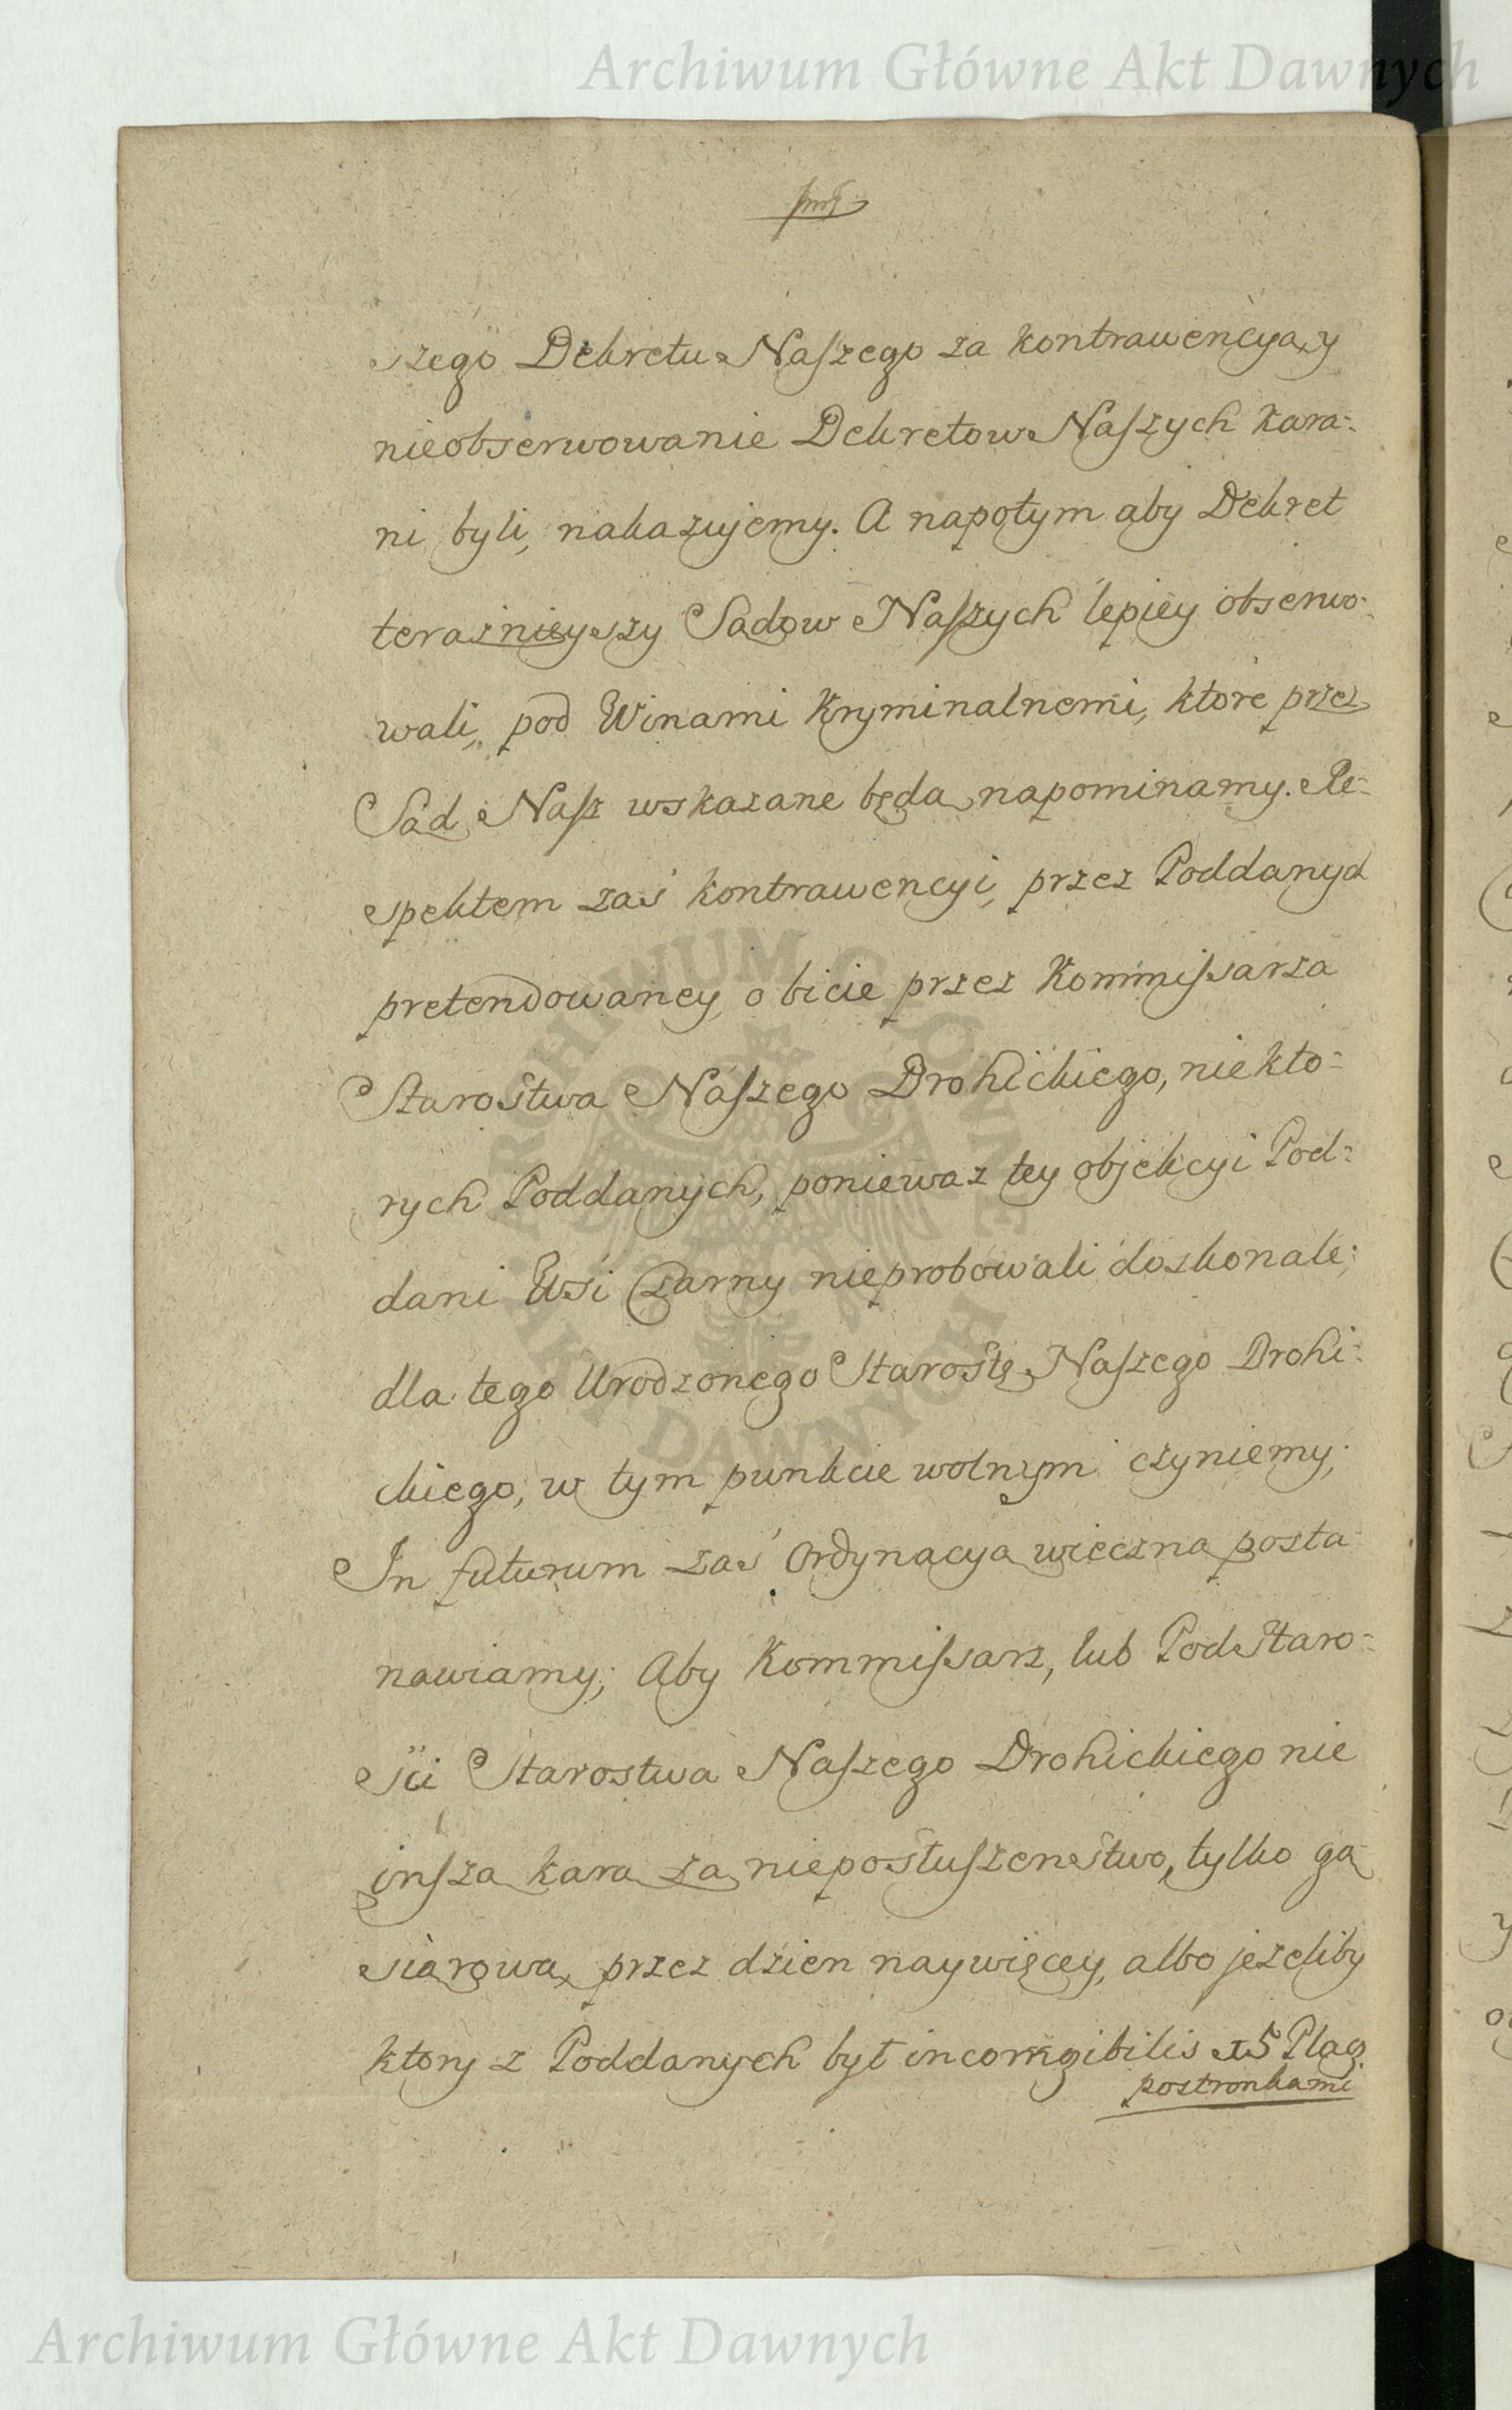 Archiwum Główne Akt Dawnych
szego Dekretu Naszego za kontrawencyą y
nieobserwowanie Dekretow Naszych kara-
ni byli, nakazujemy. A napotym aby Dekret
teraznieyszy Sądow Naszych lepiey obserwo-
wali, pod Winami Kryminalnemi, ktore przez
Sąd Nasz wskazane będą napominamy. Re-
spektem zaś kontrawencyi, przez Poddanych
pretendowaney, o bicie przez Kommissarza
Starostwa Naszego Drohickiego, niekto-
rych Poddanych, poniewaz tey objekcyi Pod-
dani Wsi Czarny nieprobowali doskonale;
dla tego Urodzonego Starostę Naszego Drohi-
ckiego, w tym punkcie wolnym czyniemy;
In futurum zaś Ordynacyą wieczną posta
nawiamy; Aby Kommissarz, lub PodStaro-
sci Starostwa Naszego Drohickiego nie
inszą karą za nieposłuszenstwo, tylko gą
siorową, przez dzien naywięcey, albo jezeliby
ktory z Poddanych był incorrigibilis 15 Plag
postronkami
ARCHIWUM GŁÓWNE AKT DAWNYCH
Archiwum Główne Akt Dawnych